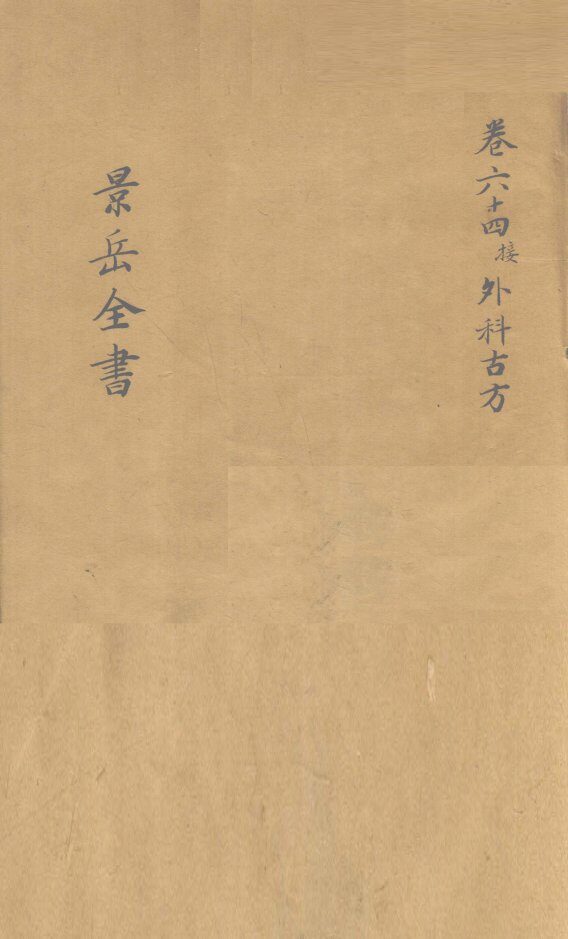 卷六十四接外科古方
景岳全書